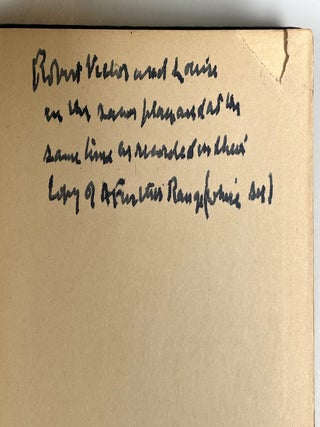 Robert Victor and Louise
in the same place and at the
same time as recorded in their
Copy of A Further Range (which see)